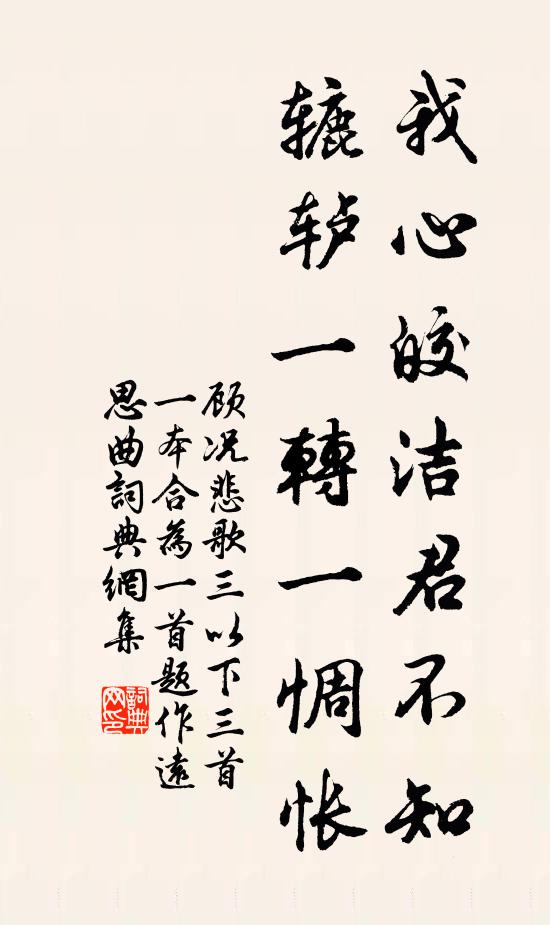 我心皎洁君不知
辘轳一轉一惆怅
顾况悲歌三以下三首
一本合為一首题作遠
思曲詞典網集
詞典
网印